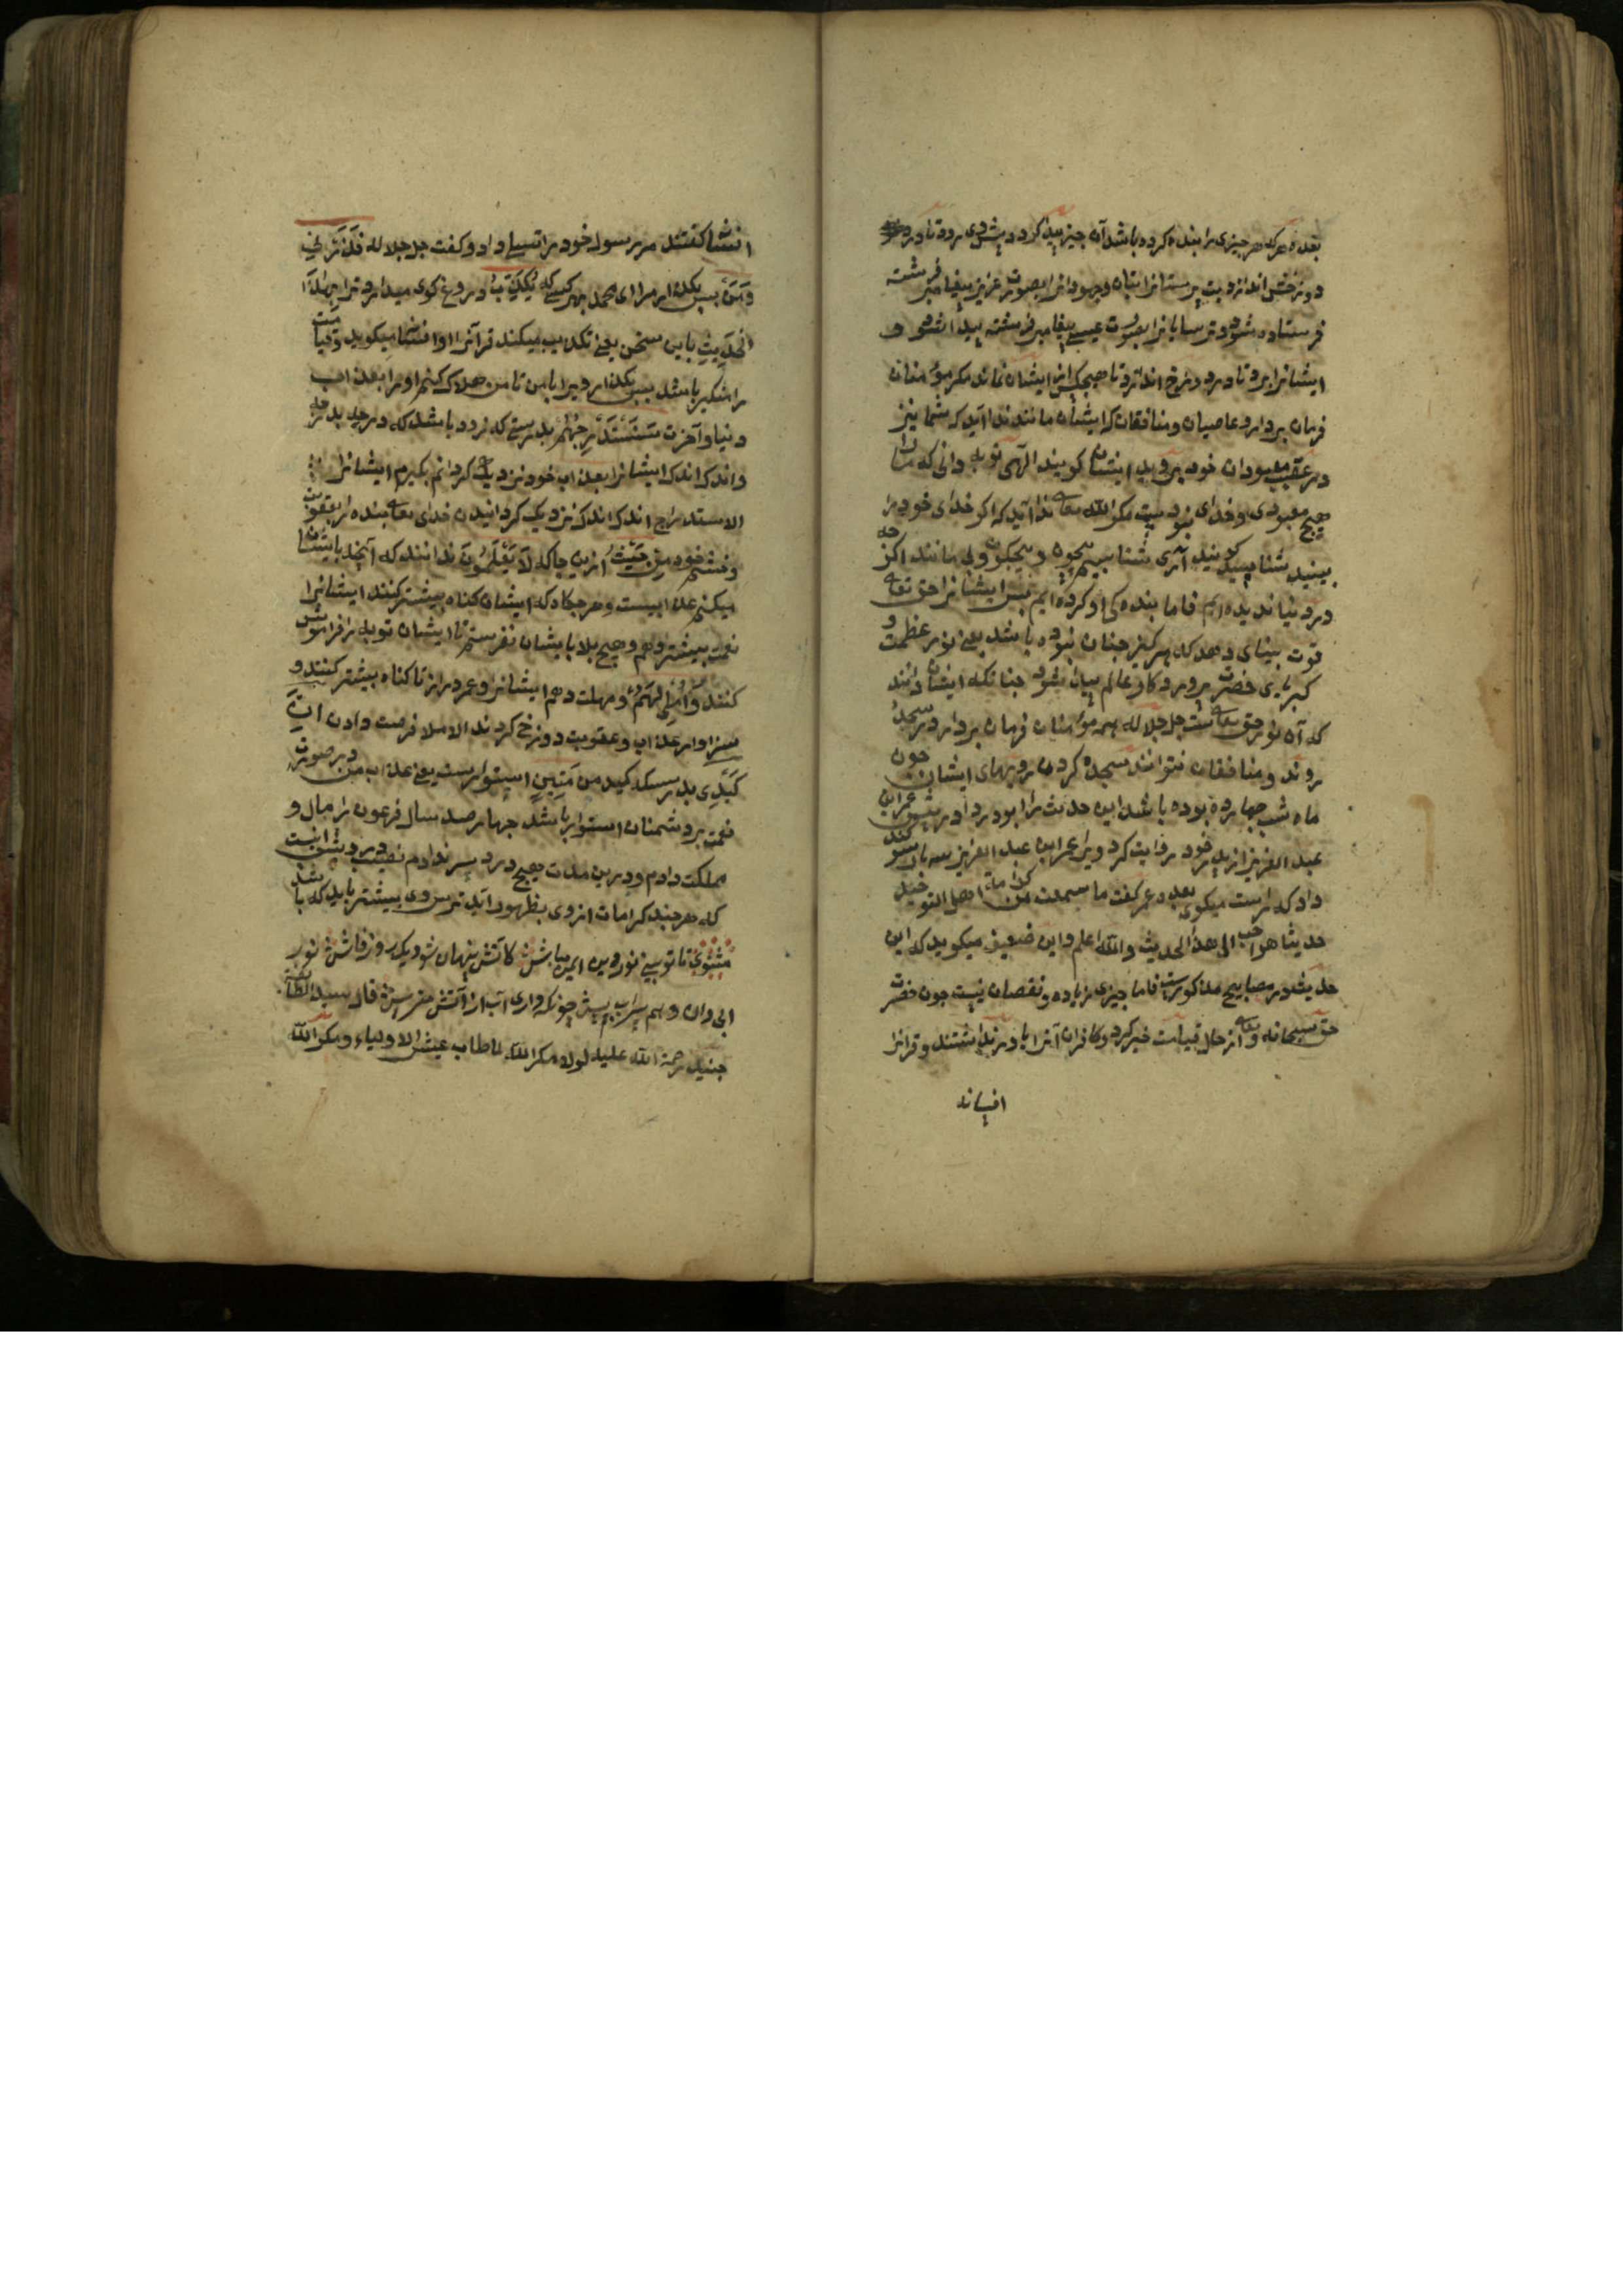 بعده هر که هر چیزی را بنده کرده باشد آن چیز پیدا کردد پیش وی رود تا در
دوزخش اندازد بت پرستانرا بتان وجهودانرا بصورت عزیر پیغامبر فرشته
فرستاده شود وترسایانرا بصورت عیسی پیغامبر فرشته پیدا شود و
ایشانرا برد تا در دوزخ اندازد تا هیچکس از ایشان نماند مکر مؤمنان
فرمان بردار وعاصیان ومنافقان که ایشان مانند ندا آید که شما نیز
در عقب معبودان خود بروید ایشان کویند الهی تو به دانی که ما را
هیچ معبودی وخدای نبود مکر الله تعالی ندا آید که اکر خدای خود را
ببینید شناسید کویند آری شناسیم بیچون و بیچکونه وبی مانند اکر چه
در دنیا ندیده ایم فاما بنده کی او کرده ایم پس ایشانرا حق تعالی
قوت بینای دهد که هرکز چنان نبوده باشد یعنی نور عظمت و
کبریای حضرت پروردکار عالم پیدا شود چنانکه ایشان دانند
که آن نور حق تعالیست جل جلاله همه مؤمنان فرمان بردار در سجده
روند ومنافقان نتوانند سجده کردن رویهای ایشان چون
ماه شب چهارده بوده باشد این حدیث را ابو بردا در پیش عمر ابن
عبد العزیز از پدر خود روایت کرد ویرا عمر ابن عبد العزیز سه بار سوکند
داد که راست میکوی بعده عمر کفت ما سمعت من کلامة اهل التوحید
حدیثا هو احب الی هذا الحدیث والله اعلم واین ضعیف میکوید که این
حدیث در مصابیح مذکورست فاما چیزی زیاده ونقصان نیست چون حضرت
حق سبحانه وتعالی از حال قیامت خبر کرد وکافران آنرا باور نداشتند وقرانرا
افسانه
افسانه کفتند مر رسول خود را تسلی داد وکفت جل جلاله فَذَرْنِی
وَمَنْ پس بکذار مرا ای محمد بهر کسی که یُکَذِّبُ دروغ کوی میدارد ترا بِهٰذَا
الْحَدِیثِ باین سخن یعنی تکذیب میکند قرآنرا وافسانها میکوید وقیامت
را منکر باشد پس بکذار ویرا بامن تا من هلاک کنم او را بعذاب
دنیا وآخرت سَنَسْتَدْرِجُهُمْ بدرستی که زود باشد که درجه بدرجه
واندک اندک ایشانرا بعذاب خود نزدیک کردانم بکیرم ایشانرا
الاستدراج اندک اندک نزدیک کردانیدن خدای تعالی بنده را بعقوبت
وخشم خود مِنْ حَیْثُ ازین جا که لَا یَعْلَمُونَ ندانند که آنچه بایشان
میکنم عذابیست وهر چکاه که ایشان کناه بیشتر کنند ایشانرا
نعمت بیشتر دهم وهیچ بلا بایشان نفرستم تا ایشان توبه را فراموش
کنند وَاُمْلِی لَهُمْ ومهلت دهم ایشانرا وعمر دراز تا کناه بیشتر کنند و
سزاوار عذاب وعقوبت دوزخ کردند الاملا فرصت دادن اِنَّ
کَیْدِی بدرستکه کید من مَتِینٌ استوارست یعنی عذاب من در صورت
نعمت بر دشمنان استوار باشد چهار صد سال فرعون را مال و
مملکت دادم ودرین مدت هیچ درد سر ندادم نصیب درویش آنست
که هر چند کرامات از وی بظهور آید ترس وی بیشتر باید که باشد
مثنوی تا تو بینی نور دین ایمن مباش کاتش پنهان شود یکروز فاش نور
ابی دان وهم بر آب چونکه داری آب از آتش مترس قال سید الطائفه
جنید رحمة الله علیه لولا مکر الله لما طاب عیش الاولیاء ومکر الله